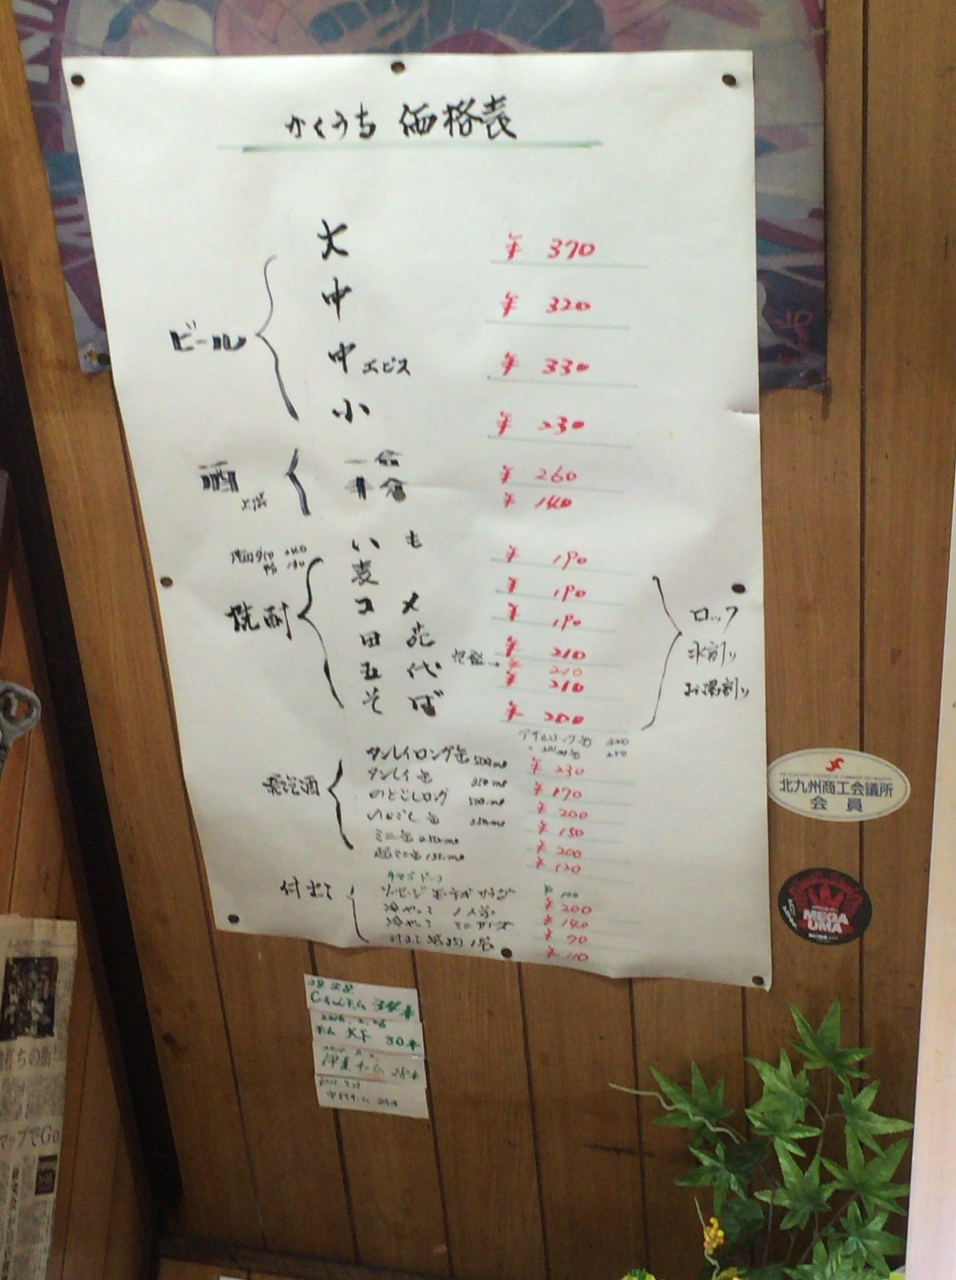 かくうち 価格表
大 ¥ 370
中 ¥ 320
ビール
中 エビス ¥ 330
小 ¥ 230
酒 一合 ¥ 260
上撰 半分 ¥ 140
いも ¥ 190
麦 ¥ 190
焼酎 コメ ¥ 190
田苑 ¥ 210
¥ 210
五代 ¥ 210
そば ¥ 200
ロック
水割り
お湯割り
タンレイロング缶 500ml ¥ 230
タンレイ缶 350ml ¥ 170
発泡酒 のどごしロング 500ml ¥ 200
のどごし缶 350ml ¥ 150
ミニ缶 250ml ¥ 200
超ミニ缶 135ml ¥ 120
¥ 100
付出し ソーセージ ¥ 200
冷やっこ 1人分 ¥ 140
冷やっこ ミニサイズ ¥ 70
¥ 110
北九州商工会議所
会員
MEGA
UMA
30本
マップでGo